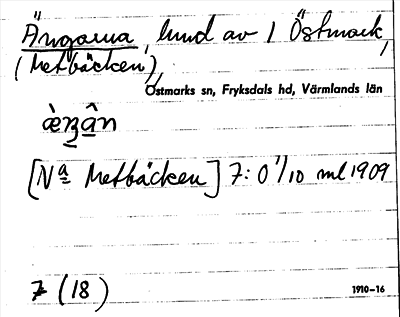 Ängarna, lund av / Östmark,
(Metbäcken),
Östmarks sn, Fryksdals hd, Värmlands län
[Nª Metbäcken] 7:0 1/10 ml 1909
7 (18)
1910-16